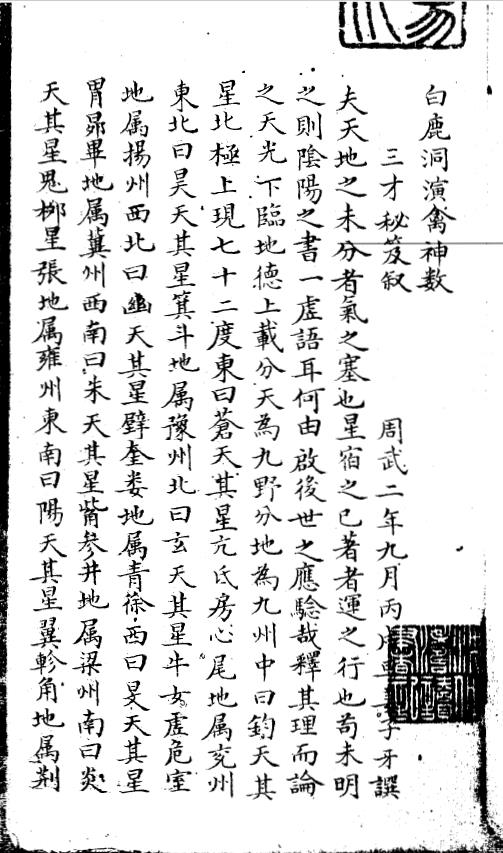 白鹿洞演禽神数
三才秘笈叙
周武二年九月丙 子牙譔
夫天地之未分者氣之塞也星宿之已著者運之行也苟未明
之則陰陽之書一虛語耳何由啟後世之應驗哉釋其理而論
之天光下臨地德上載分天為九野分地為九州中曰鈞天其
星北極上現七十二度東曰蒼天其星亢氐房心尾地属兗州
東北曰昊天其星箕斗地属豫州北曰玄天其星牛女虛危室
地属揚州西北曰幽天其星壁奎娄地属青徐西曰旻天其星
胃昴畢地属冀州西南曰朱天其星觜參井地属梁州南曰炎
天其星鬼栁星張地属雍州東南曰陽天其星翼軫角地属荆